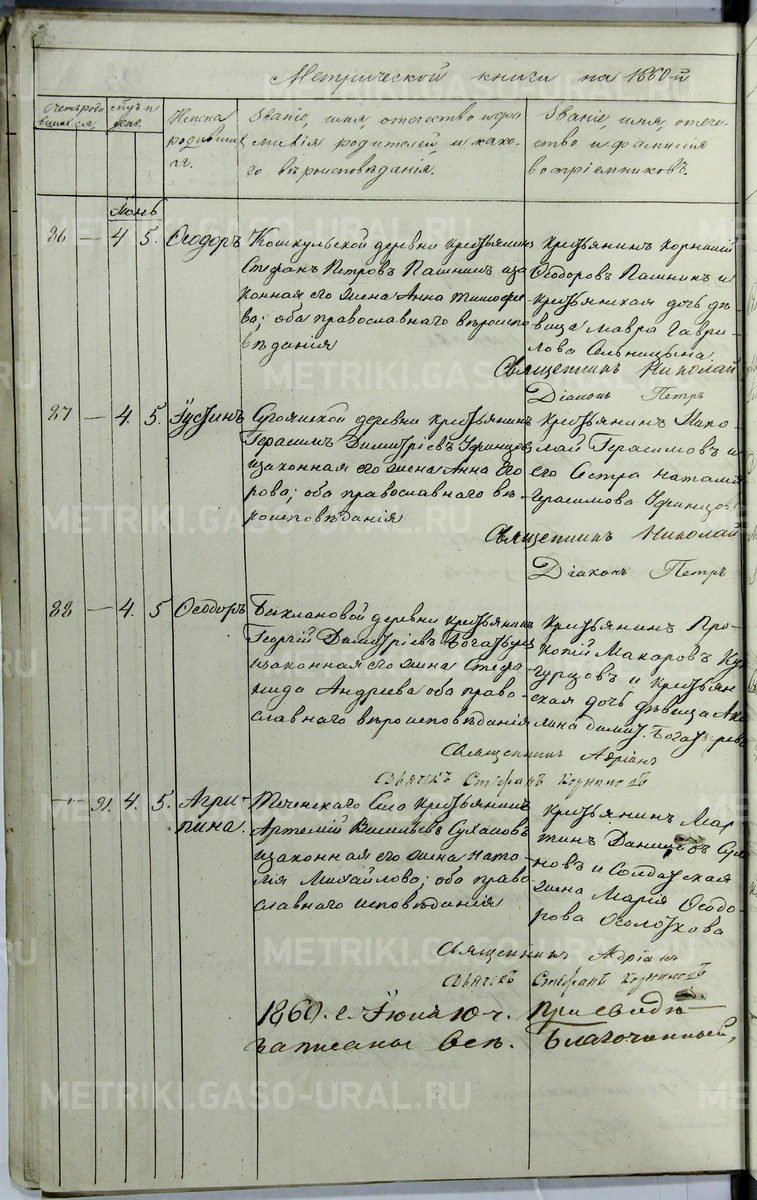 Метрической книги на 1860-й
Счетъ роди
вшихся
Имена
родивших
ся.
Званіе, имя, отчество и фа-
милія родителей и како-
го вѣроисповѣданія.
Званіе, имя, отече-
ство и фамилія
воспріемниковъ.
Іюнь
86 — 4 5. Ѳеодоръ
Кошкульской деревни крестьянинъ
Стефанъ Петровъ Пашнинъ и за
конная его жена Анна Тимофе
ва; оба православнаго вѣроиспо
вѣданія
крестьянинъ Корнилій
Ѳеодоровъ Пашнинъ и
крестьянская дочь дѣ
вица Мавра Гаври-
лова
Священникъ Николай
Діаконъ Петръ
87 — 4. 5. Іустинъ
деревни крестьянинъ
Герасимъ Димитріевъ Уфинцовъ
и законная его жена Анна Его
рова; оба православнаго вѣ-
роисповѣданія
крестьянинъ Нико
лай Герасимовъ и
его сестра Наталія
Герасимова Уфинцова
Священникъ Николай
Діаконъ Петръ
88 — 4. 5 Ѳеодоръ
Баклановой деревни крестьянинъ
Георгій Димитріевъ Богатыревъ
и законная его жена Стефа
нида Андреева оба право-
славнаго вѣроисповѣданія
крестьянинъ Про-
копій Макаровъ
и крестьян
ская дочь дѣвица Аку
лина Димит. Богатырева
Священникъ Адріанъ
Дьячекъ Стефанъ
91. 4. 5. Агри-
пина.
Теченскаго Села крестьянинъ
Артемій Васильевъ Сухановъ
и законная его жена Ната
лія Михайлова; оба право
славнаго исповѣданія
крестьянинъ Мар
тинъ Даниловъ Суха
новъ и Солдатская
жена Марія Ѳеодо-
рова
Священникъ Адріанъ
Дьячекъ Стефанъ
1860. г. Іюня 10 ч. При свидѣ
записаны всѣ. Благочинный,
METRIKI.GASO-URAL.RU